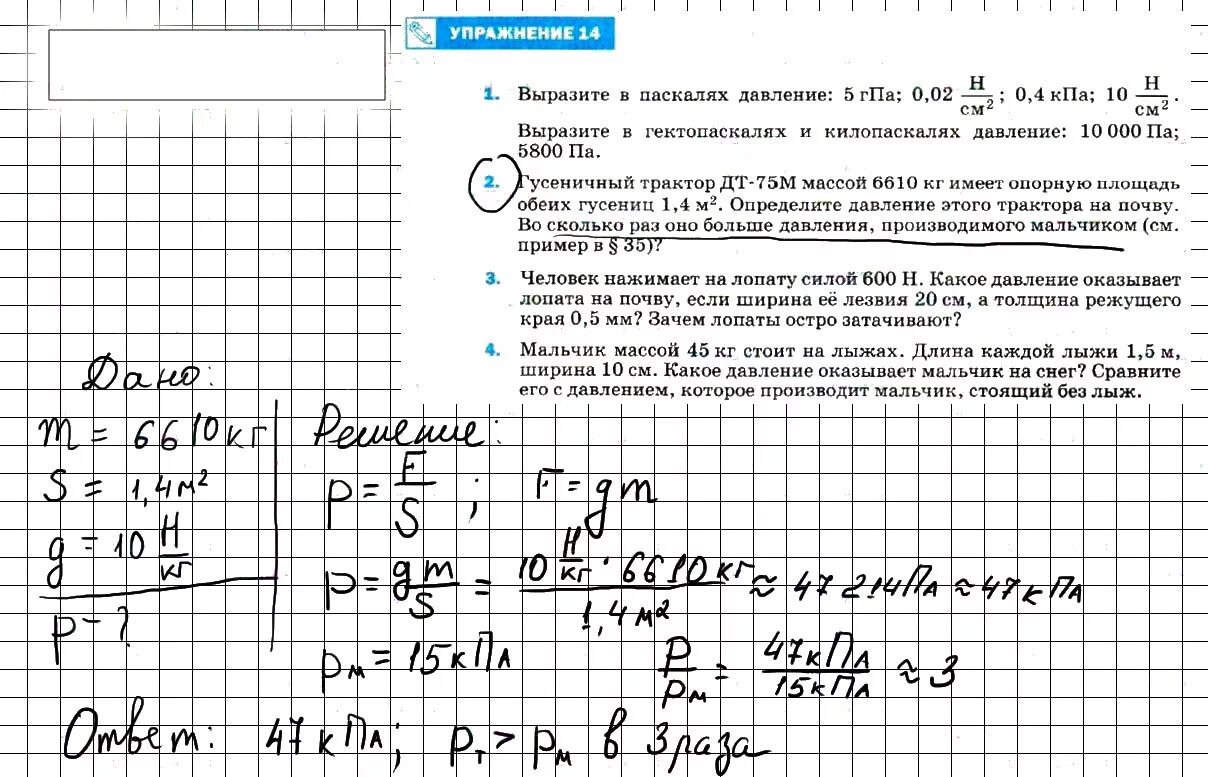 УПРАЖНЕНИЕ 14
1. Выразите в паскалях давление: 5 гПа; 0,02 Н/см²; 0,4 кПа; 10 Н/см².
Выразите в гектопаскалях и килопаскалях давление: 10 000 Па;
5800 Па.
2. Гусеничный трактор ДТ-75М массой 6610 кг имеет опорную площадь
обеих гусениц 1,4 м². Определите давление этого трактора на почву.
Во сколько раз оно больше давления, производимого мальчиком (см.
пример в § 35)?
3. Человек нажимает на лопату силой 600 Н. Какое давление оказывает
лопата на почву, если ширина её лезвия 20 см, а толщина режущего
края 0,5 мм? Зачем лопаты остро затачивают?
4. Мальчик массой 45 кг стоит на лыжах. Длина каждой лыжи 1,5 м,
ширина 10 см. Какое давление оказывает мальчик на снег? Сравните
его с давлением, которое производит мальчик, стоящий без лыж.
Дано:
m = 6610 кг
S = 1,4 м²
g = 10 Н/кг
p - ?
Решение:
p = F/S ; F = gm
p = gm/S = 10 Н/кг · 6610 кг / 1,4 м² ≈ 47 214 Па ≈ 47 кПа
pм = 15 кПа p/pм = 47 кПа/15 кПа ≈ 3
Ответ: 47 кПа; pт > pм в 3 раза